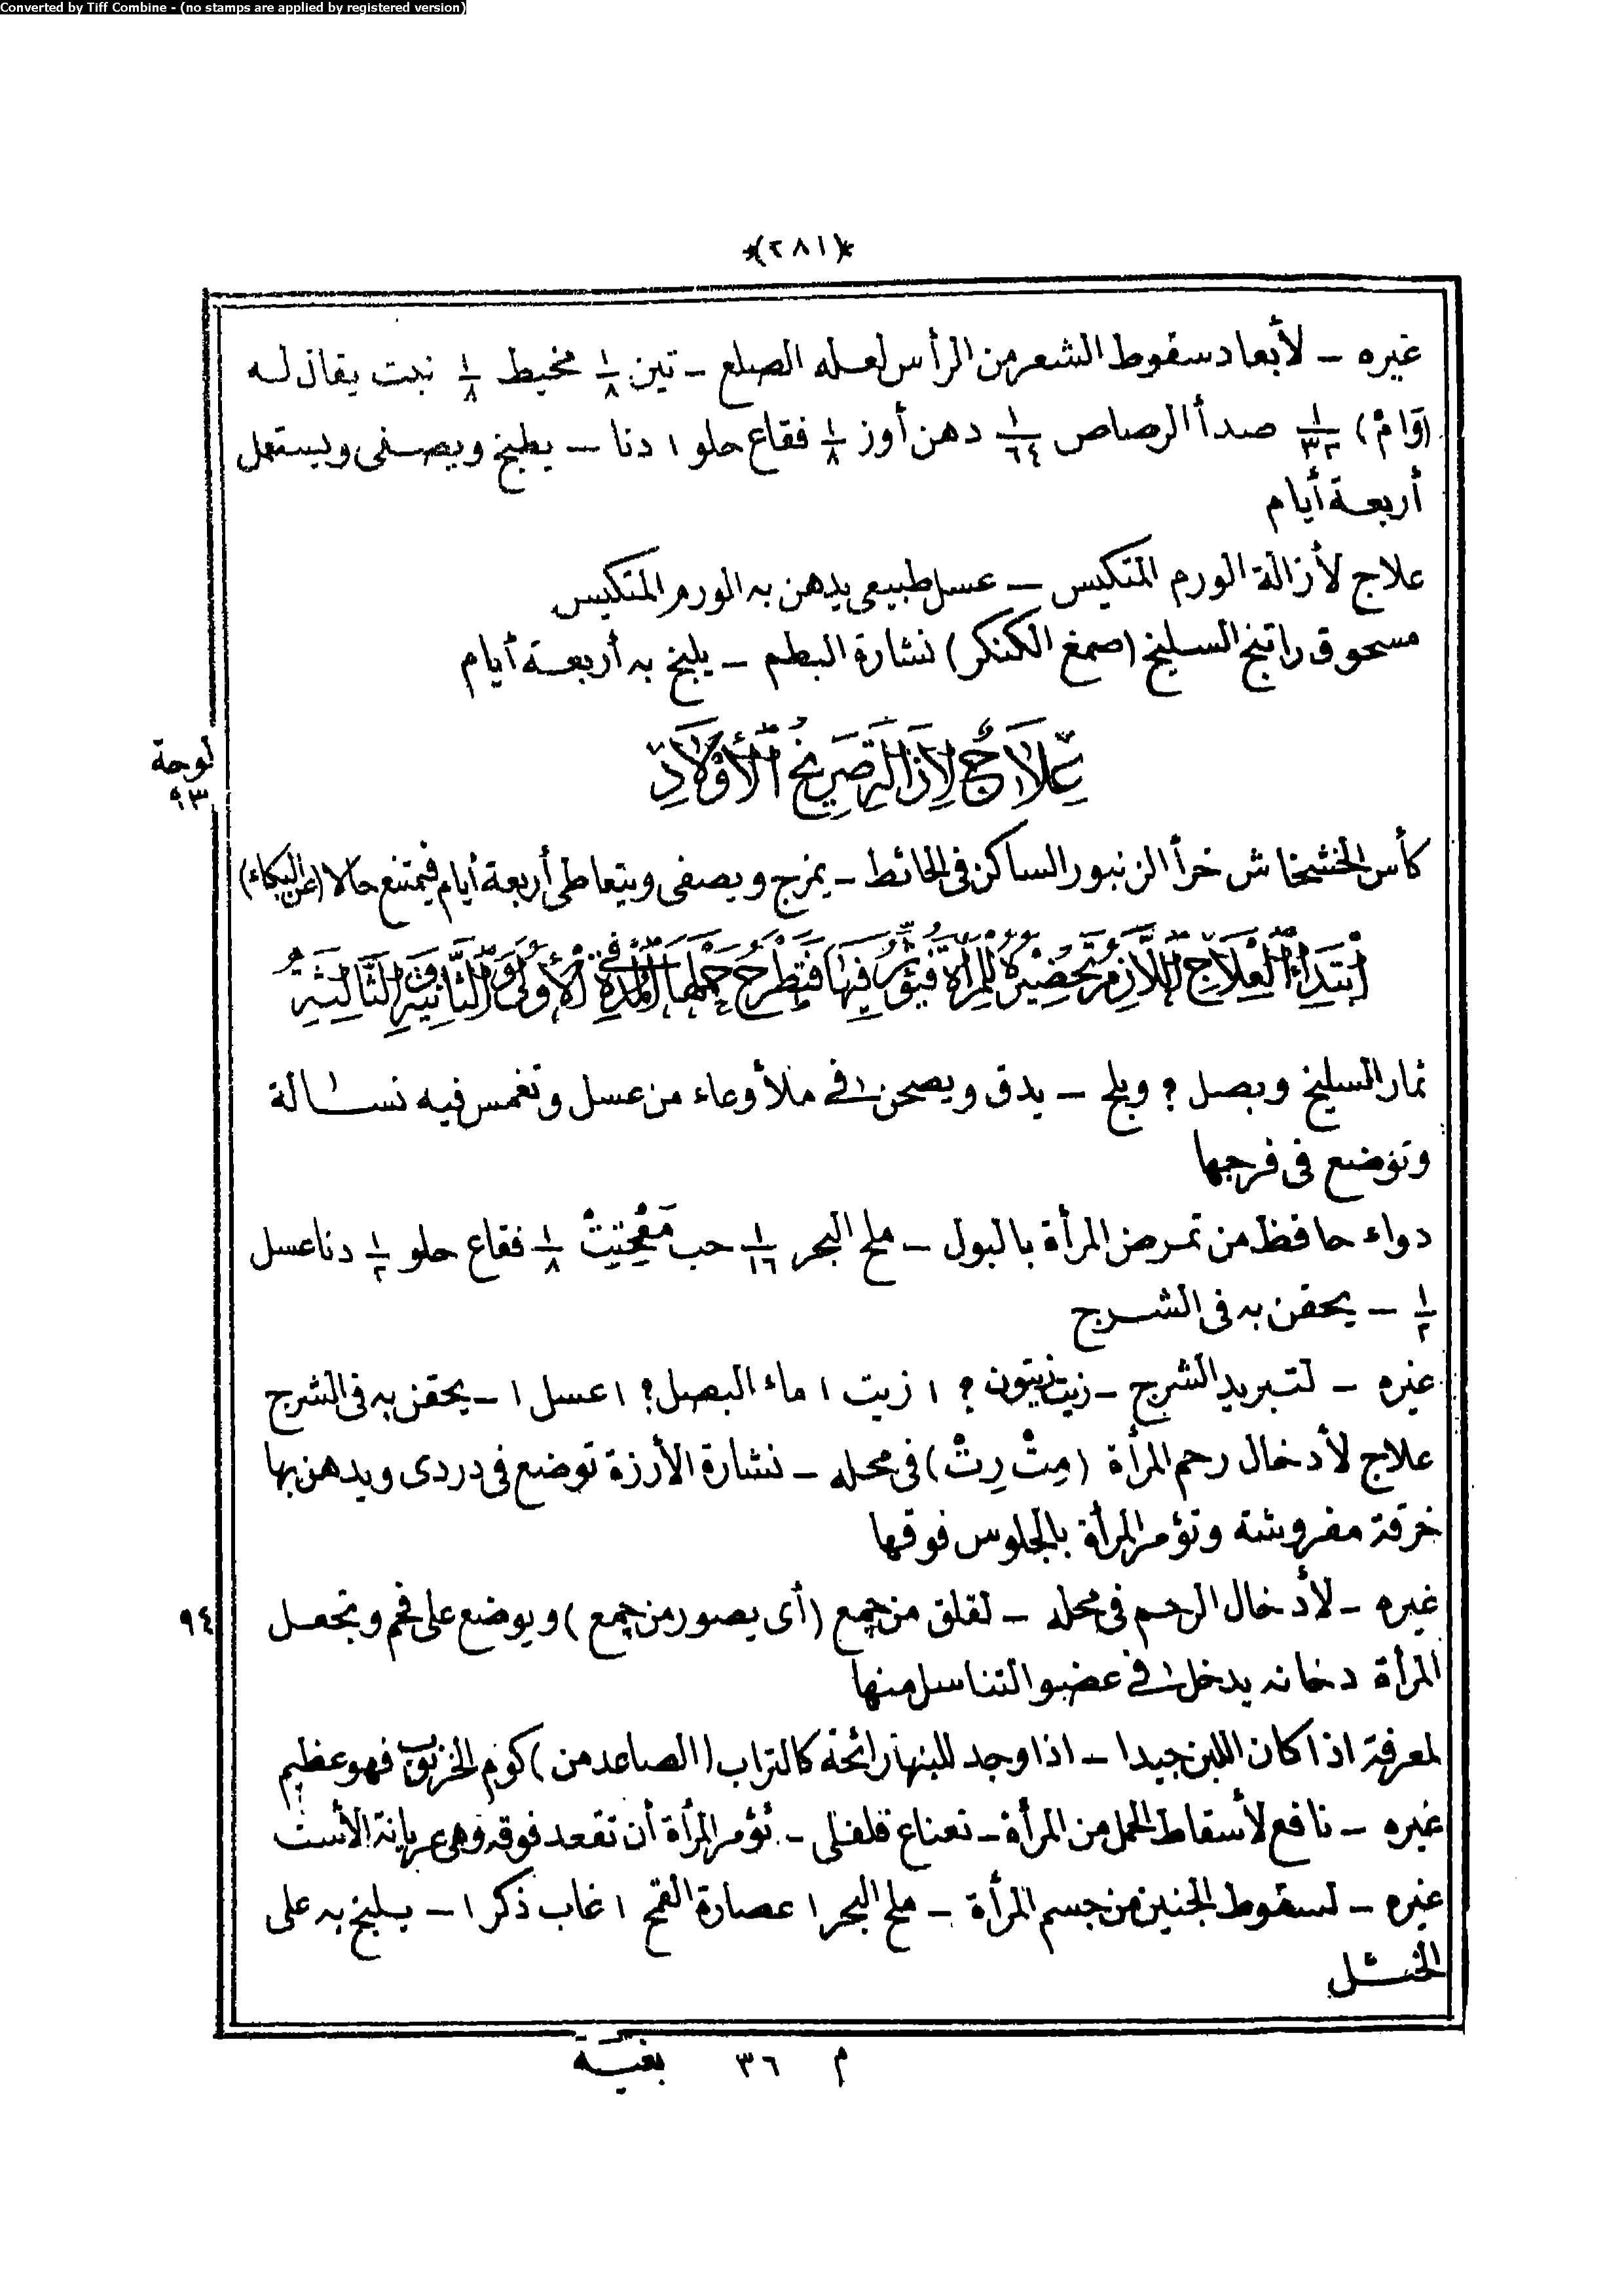 Converted by Tiff Combine - (no stamps are applied by registered version)
*(٢٨١)*
غيره – لأبعاد سقوط الشعر من الرأس لعله الصلع – تين ١/٨ مخيط ١/٨ نبت يقال له
(وَامْ) ١/٣٢ صدأ الرصاص ١/٦٤ دهن أوز ١/٨ فقاع حلو ١ دنا – يطبخ ويصفى ويستعمل
أربعة أيام
علاج لأزالة الورم المتكيس – عسل طبيعى يدهن به الورم المتكيس
مسحوق راتينج السليخ (صمغ الكنكر) نشارة البطم – يلبخ به أربعة أيام
عِلَاجٌ لِإِزَالَةِ صَرِيخُ الْأَوْلَادِ
لوحة
٩٣
كأس الخشخاش خرأ الزنبور الساكن فى الحائط – يمزج ويصفى ويتعاطى أربعة أيام فيمتنع حالا (عن البكاء)
اِبْتِدَاءُ الْعِلَاجِ اللَّازِمُ تَحْضِيْرُهُ لِلْمَرْأَةِ فَيُؤَثِّرُ فِيْهَا فَتَطْرَحُ حَمْلَهَا فِى الْمُدَّةِ الْأُولَى وَالثَّانِيَةِ وَالثَّالِثَةِ
ثمار السليخ وبصل ? وبلح – يدق ويصحن فى ملأ وعاء من عسل وتغمس فيه نسالة
وتوضع فى فرجها
دواء حافظ من تمرض المرأة بالبول – ملح البحر ١/١٦ حب مَفْحِتِيتْ ١/٨ فقاع حلو ١/٢ دنا عسل
١/٢ – يحقن به فى الشرج
غيره – لتبريد الشرج – زيت زيتون ? ١ زيت ١ ماء البصل ? ١ عسل ١ – يحقن به فى الشرج
علاج لأدخال رحم المرأة (مِتْ رِتْ) فى محله – نشارة الأرزة توضع فى دردى ويدهن بها
خرقة مفروشة وتؤمر المرأة بالجلوس فوقها
غيره – لأدخال الرحم فى محله – لقلق من جمع (أى يصور من جمع) ويوضع على فحم وتجعل
٩٤
المرأة دخانه يدخل فى عضو التناسل منها
لمعرفة اذا كان اللبن جيدا – اذا وجد للبنها رائحة كالتراب (الصاعد من) كوم الخرنوب فهو عظيم
غيره – نافع لأسقاط الحمل من المرأة – نعناع فلفلى – تؤمر المرأة أن تقعد فوقه وهى عريانة الأست
غيره – لسقوط الجنين من جسم المرأة – ملح البحر ١ عصارة القمح ١ غاب ذكر ١ – يلبخ به على
الخثل
م ٣٦ بغية